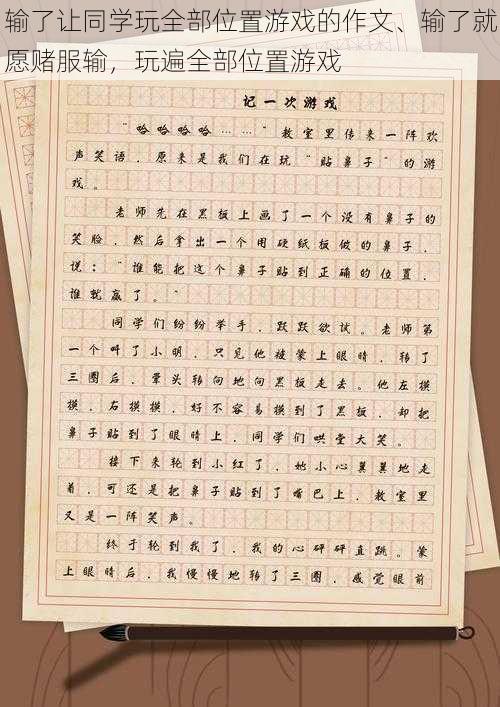 输了让同学玩全部位置游戏的作文、输了就
愿赌服输，玩遍全部位置游戏
记一次游戏
“哈哈哈哈……”教室里传来一阵欢
声笑语，原来是我们在玩“贴鼻子”的游
戏。
老师先在黑板上画了一个没有鼻子的
笑脸，然后拿出一个用硬纸板做的鼻子，
说：“谁能把这个鼻子贴到正确的位置，
谁就赢了。”
同学们纷纷举手，跃跃欲试。老师第
一个叫了小明，只见他被蒙上眼睛，转了
三圈后，晕头转向地向黑板走去。他左摸
摸，右摸摸，好不容易摸到了黑板，却把
鼻子贴到了眼睛上，同学们哄堂大笑。
接下来轮到小红了，她小心翼翼地走
着，可还是把鼻子贴到了嘴巴上，教室里
又是一阵笑声。
终于轮到我了，我的心砰砰直跳。蒙
上眼睛后，我慢慢地转了三圈，感觉眼前